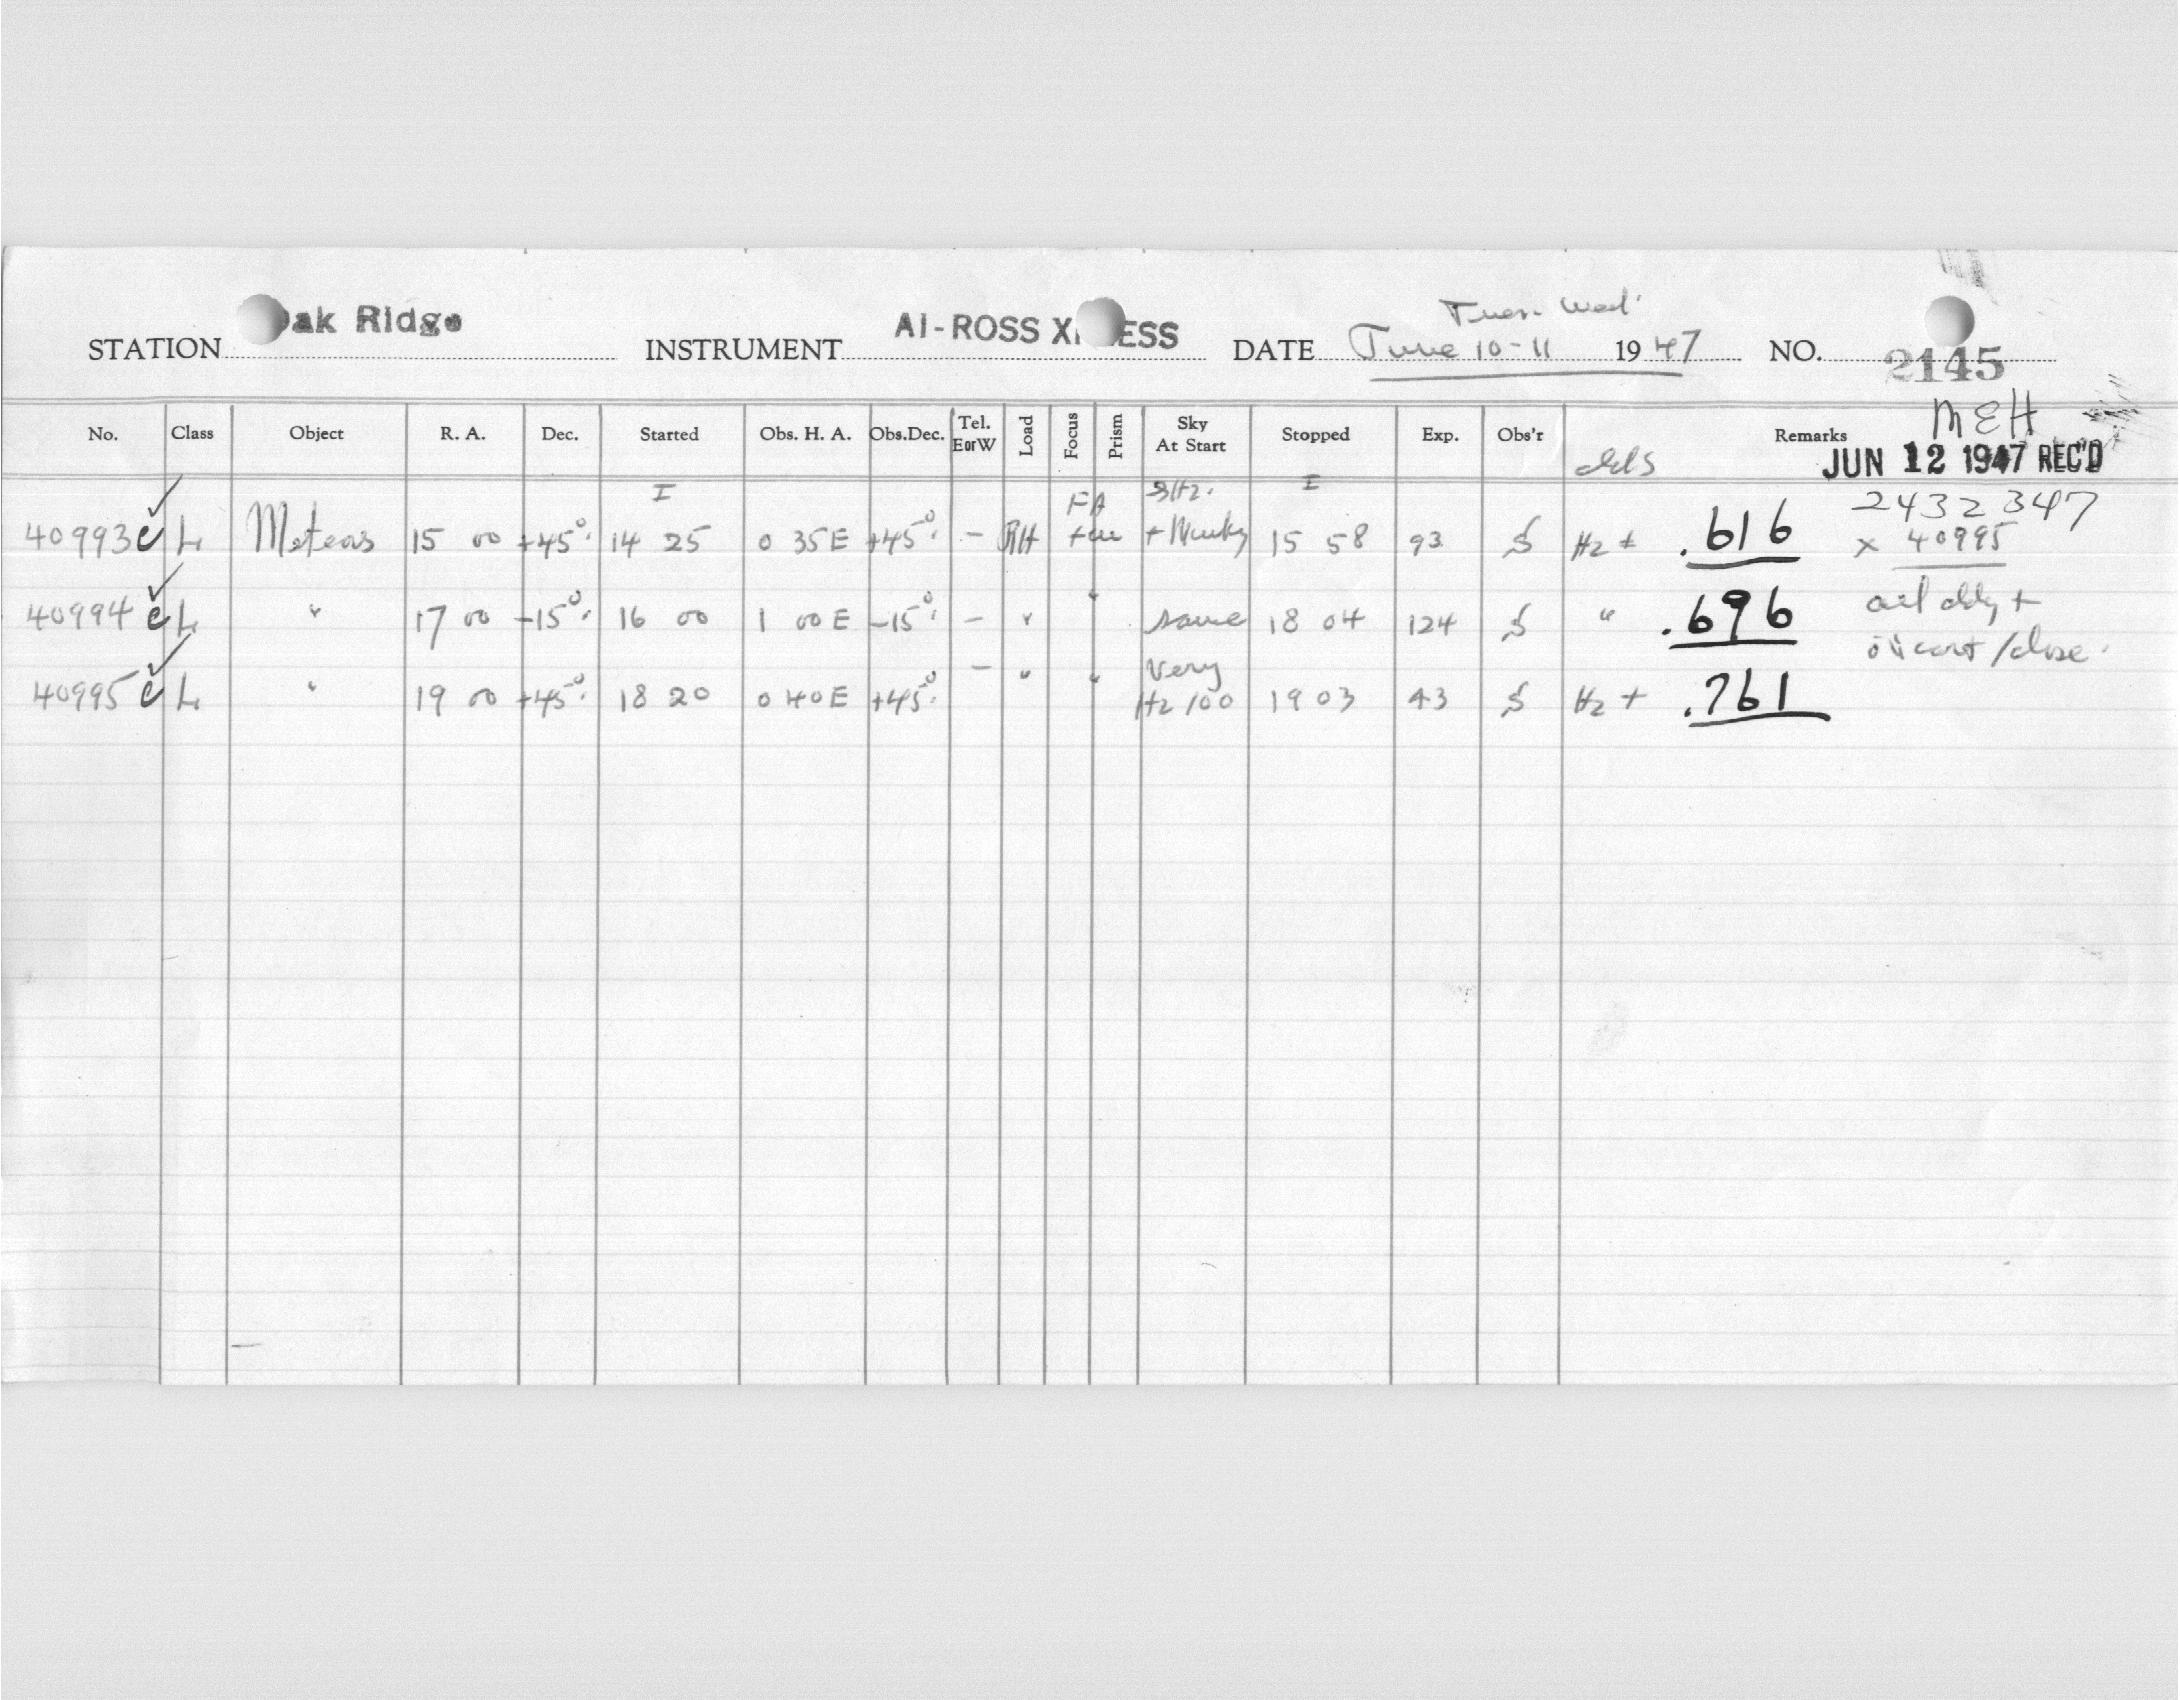 Tues. Wed.
STATION Oak Ridge INSTRUMENT AI-ROSS XPRESS DATE June 10-11 1947 NO. 2145
MEH
No. Class Object R. A. Dec. Started Obs. H. A. Obs.Dec. Tel. E or W Load Focus Prism Sky At Start Stopped Exp. Obs'r Remarks
JUN 12 1947 REC'D
I FA I 2432347
40993 L Meteors 15 00 +45° 14 25 0 35E +45° - RH 15 58 93 S Hz ± .616 x 40995
40994 L " 17 00 -15° 16 00 1 00E -15° - " " same 18 04 124 S " .696
40995 L " 19 00 +45° 18 20 0 40E +45° - " " Very Hz 100 19 03 43 S Hz + .761